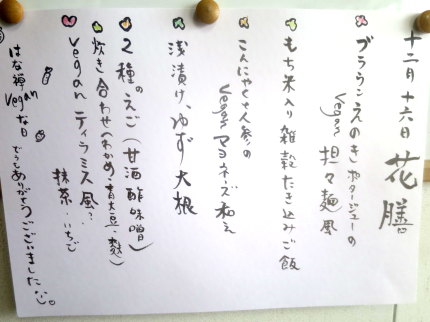 十二月十六日 花膳
ブラウンえのきポタージュの
Vegan 担々麺風
もち米入り雑穀たき込みご飯
こんにゃくと人参の
Vegan マヨネーズ和え
浅漬け、ゆず大根
2種のえご(甘酒酢味噌)
炊き合わせ(わかめ、青大豆、麩)
Vegan ティラミス風?
抹茶・いちご
はな禅 Vegan な日 どうもありがとうございました